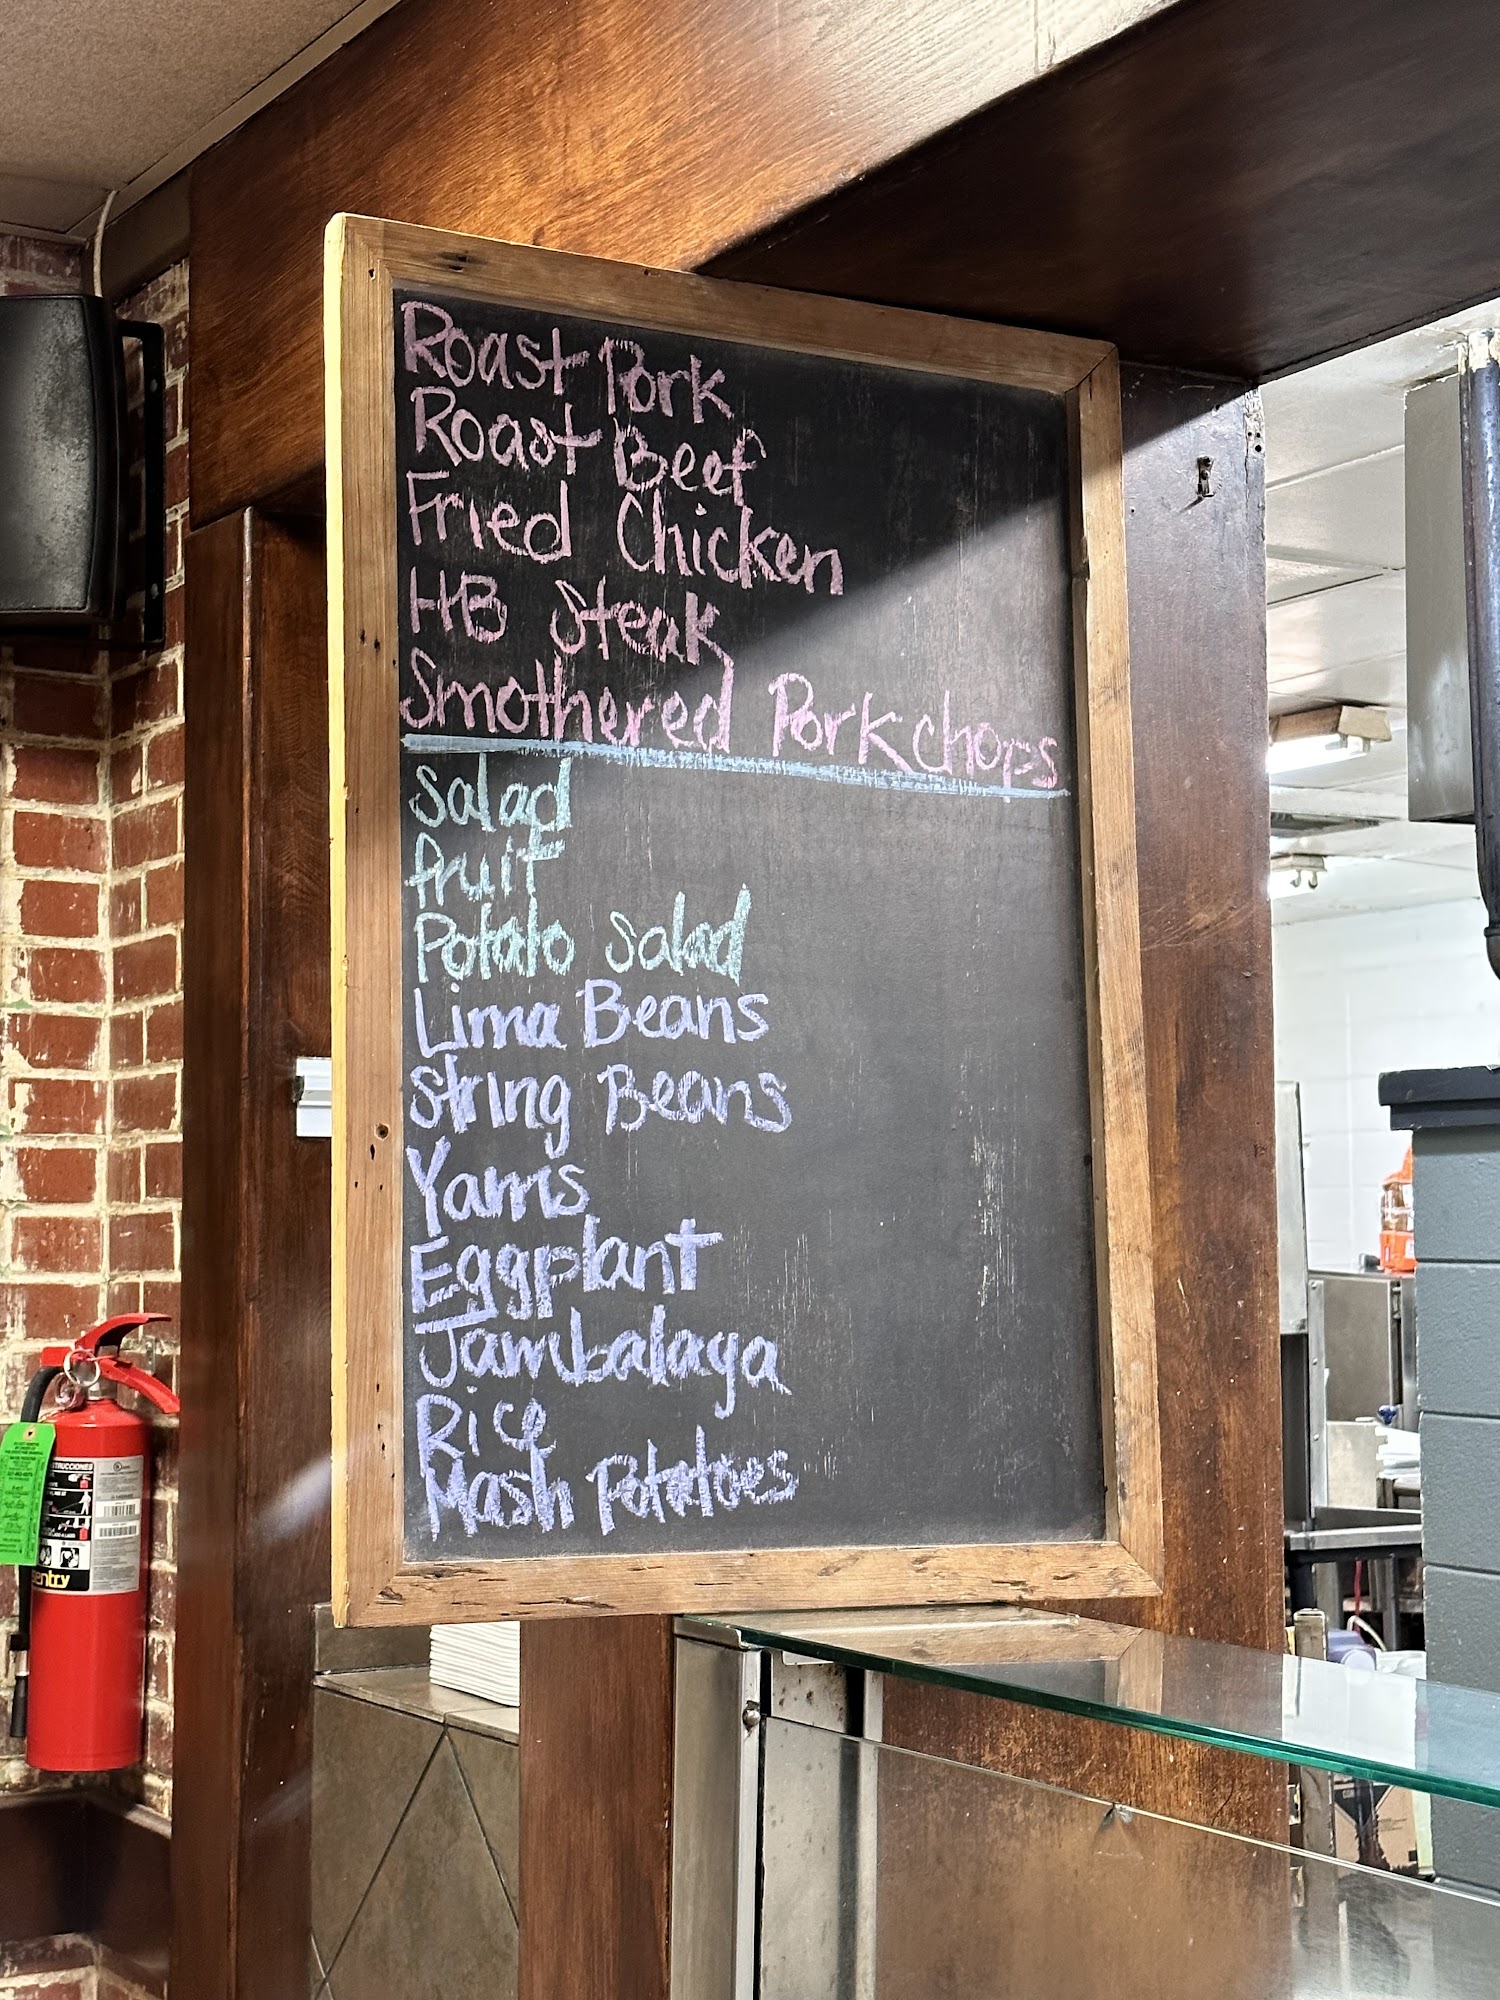 Roast Pork
Roast Beef
Fried Chicken
HB Steak
Smothered Porkchops
Salad
fruit
Potato Salad
Lima Beans
String Beans
Yams
Eggplant
Jambalaya
Rice
Mash Potatoes
INSTRUCCIONES
Sentry